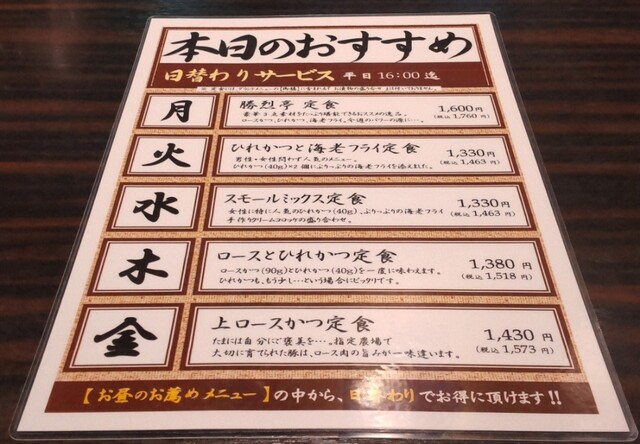 本日のおすすめ
日替わりサービス 平日 16:00 迄
月
勝烈亭 定食
1,600円
(税込 1,760円)
ロースかつ、ひれかつ、海老フライ。今週のパワーの源に…。
火
ひれかつと海老フライ定食
1,330円
(税込 1,463円)
男性・女性問わず人気のメニュー。
ひれかつ(40g)×2 個にぷりっぷりの海老フライを添えました。
水
スモールミックス定食
1,330円
(税込 1,463円)
女性に特に人気のひれかつ(40g)、ぷりっぷりの海老フライ
手作りクリームコロッケの盛り合わせ。
木
ロースとひれかつ定食
1,380円
(税込 1,518円)
ロースかつ(90g)とひれかつ(40g)を一度に味わえます。
ひれかつも、もう少し…という場合にピッタリです。
金
上ロースかつ定食
1,430円
(税込 1,573円)
たまには自分にご褒美を…。指定農場で
大切に育てられた豚は、ロース肉の旨みが一味違います。
【お昼のお薦めメニュー】の中から、日替わりでお得に頂けます!!